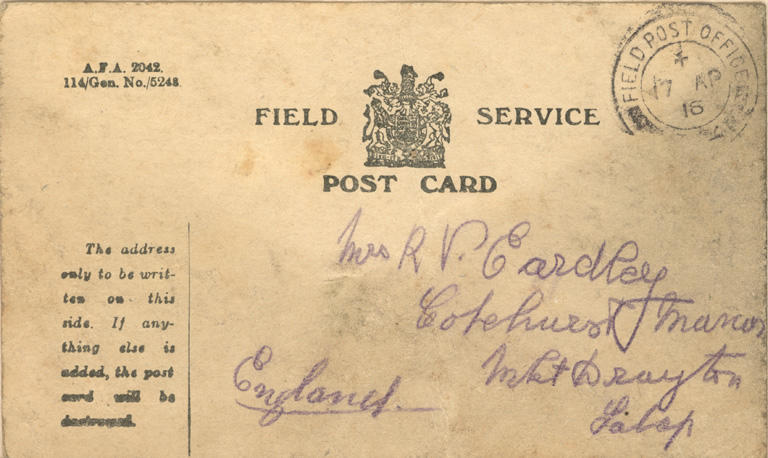 A.F.A. 2042.
114/Gen. No./5248.
FIELD SERVICE
POST CARD
FIELD POST OFFICE
17 AP
16
The address
only to be writ-
ten on this
side. If any-
thing else is
added, the post
card will be
destroyed.
Mrs R V. Eardley
Cotehurst Manor
Mkt Drayton
Salop
England.